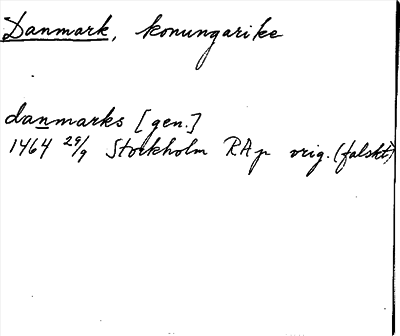 Danmark, konungarike
danmarks [gen.]
1464 29/9 Stockholm RAp orig. (falskt)